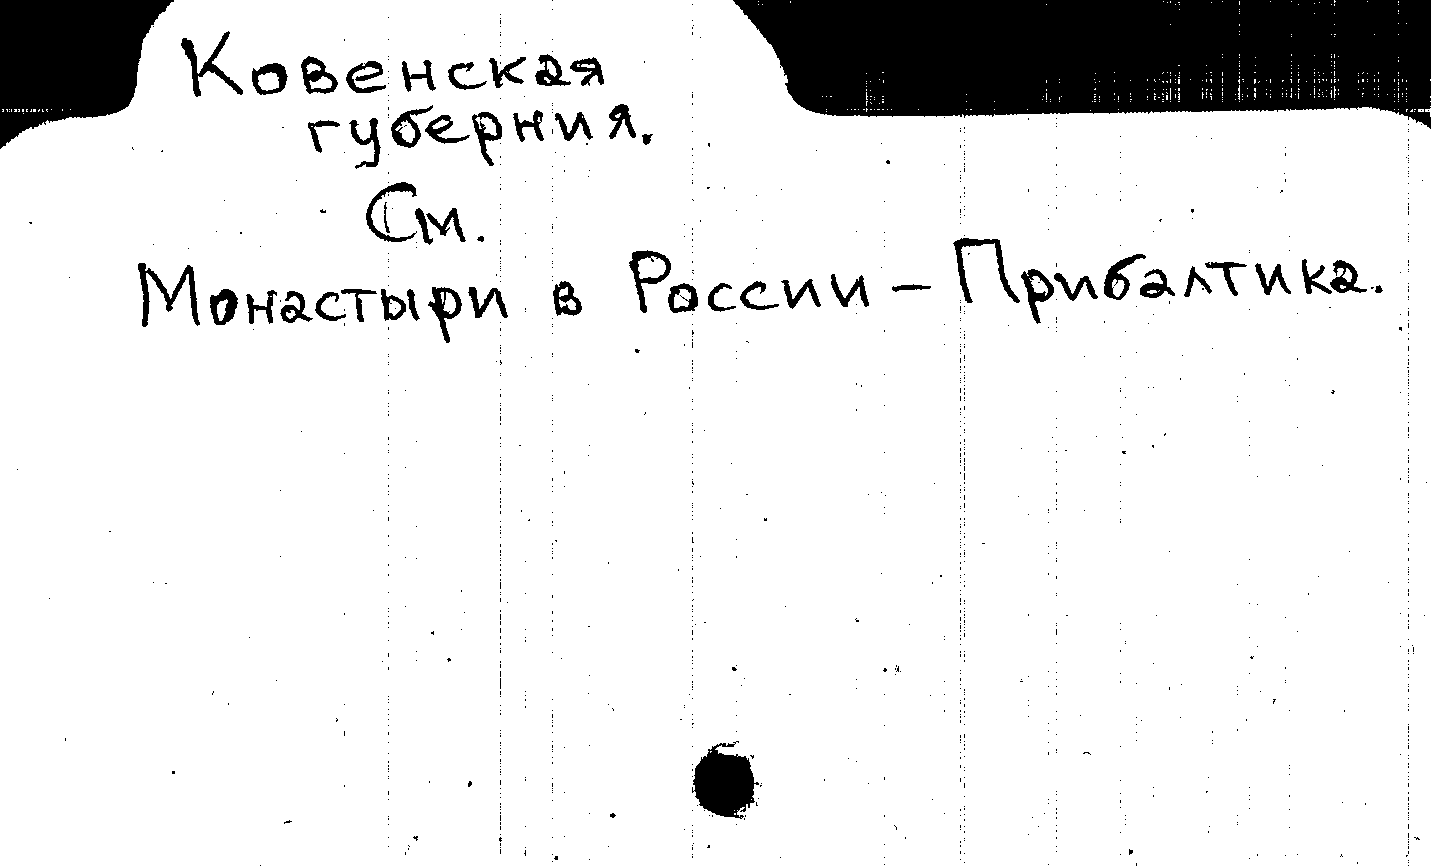 Ковенская
губерния.
См.
Монастыри в России – Прибалтика.